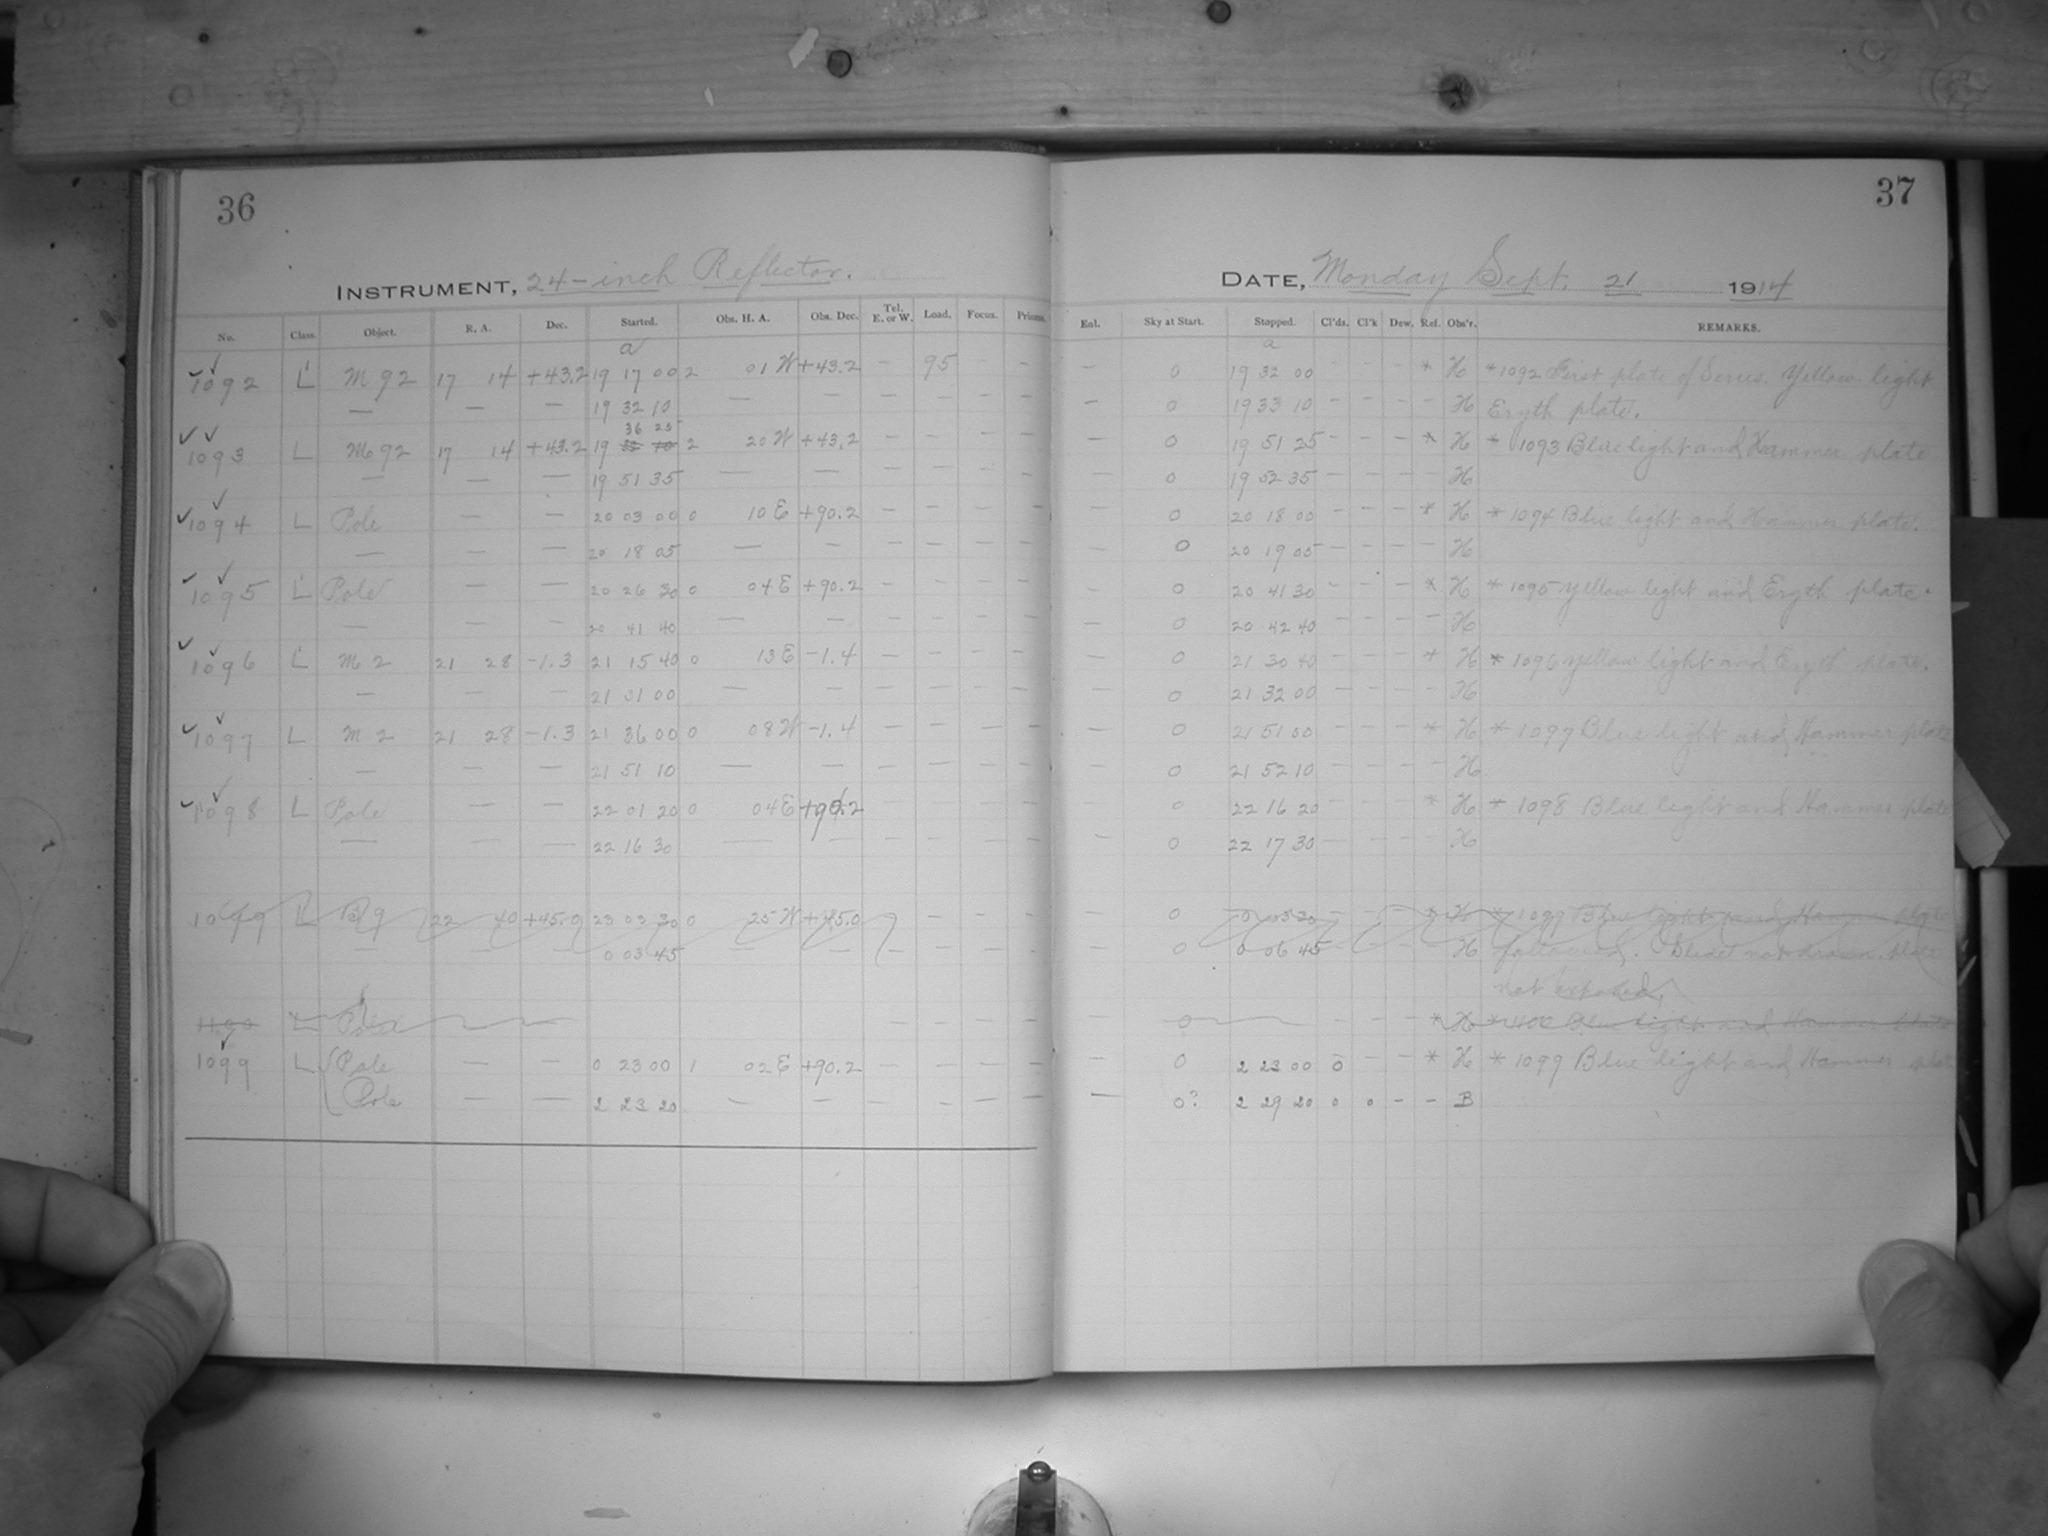 36
37
INSTRUMENT, 24-inch Reflector.
DATE, Monday Sept. 21 1914
No. Class. Object. R. A. Dec. Started. Obs. H. A. Obs. Dec. Tel. E. or W. Load. Focus. Prisms. Enl. Sky at Start. Stopped. Cl'ds. Cl'k Dew. Ref. Obs'r. REMARKS.
a a
1092 L M 92 17 14 +43.2 19 17 00 2 01 W +43.2 - 95 - - - 0 19 32 00 - - - * H *1092 First plate of Series. Yellow light
— — — 19 32 10 — — - - - - - 0 19 33 10 - - - - H Eryth plate.
36 25
1093 L M 92 17 14 +43.2 19 32 10 2 20 W +43.2 - - - - - 0 19 51 25 - - - * H * 1093 Blue light and Hammer plate
— — — 19 51 35 — — - - - - - 0 19 52 35 - - - - H
1094 L Pole — — 20 03 00 0 10 E +90.2 - - - - - 0 20 18 00 - - - * H * 1094 Blue light and Hammer plate.
— — — 20 18 05 — — - - - - - 0 20 19 05 - - - - H
1095 L Pole — — 20 26 30 0 04 E +90.2 - - - - - 0 20 41 30 - - - * H * 1095 Yellow light and Eryth plate.
— — — 20 41 40 — — - - - - - 0 20 42 40 - - - - H
1096 L M 2 21 28 -1.3 21 15 40 0 13 E -1.4 - - - - - 0 21 30 40 - - - * H * 1096 Yellow light and Eryth plate.
— — — 21 31 00 — — - - - - - 0 21 32 00 - - - - H
1097 L M 2 21 28 -1.3 21 36 00 0 08 W -1.4 - - - - - 0 21 51 00 - - - * H * 1097 Blue light and Hammer plate
— — — 21 51 10 — — - - - - - 0 21 52 10 - - - - H
1098 L Pole — — 22 01 20 0 04 E +90.2 - - - - - 0 22 16 20 - - - * H * 1098 Blue light and Hammer plate
— — — 22 16 30 — — - - - - - 0 22 17 30 - - - - H
1099 L 22 40 +45.0 23 03 30 0 25 W +45.0 - - - - 0 0 03 30 - - - * H * 1099 Blue light and Hammer plate
— — — 0 03 45 — — - - - - 0 0 06 45 - - - H followed. Slide not drawn. plate
not exposed.
1100 L Pole — — - - - - 0 - - - * H * 1100 Blue light and Hammer plate
1099 L Pole — — 0 23 00 1 02 E +90.2 - - - - - 0 2 23 00 0 - - * H * 1099 Blue light and Hammer plat
Pole — — 2 23 20 — — - - - - — 0? 2 29 20 0 0 - - B